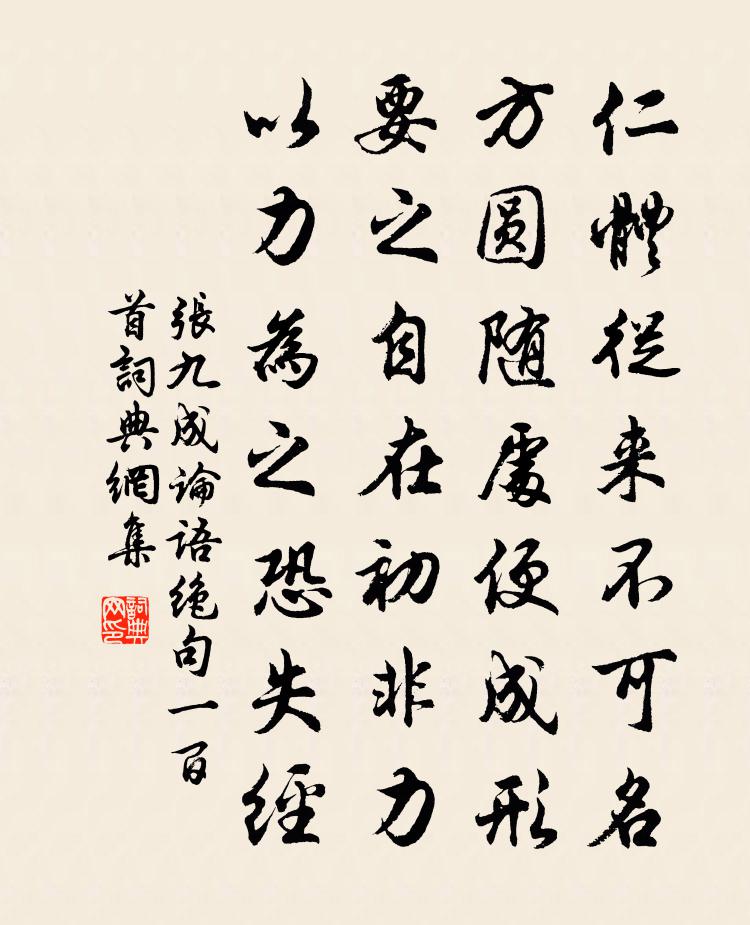 仁體從来不可名
方圓随處便成形
要之自在初非力
以力為之恐失經
張九成論語絶句一百
首詞典網集
詞典
网印